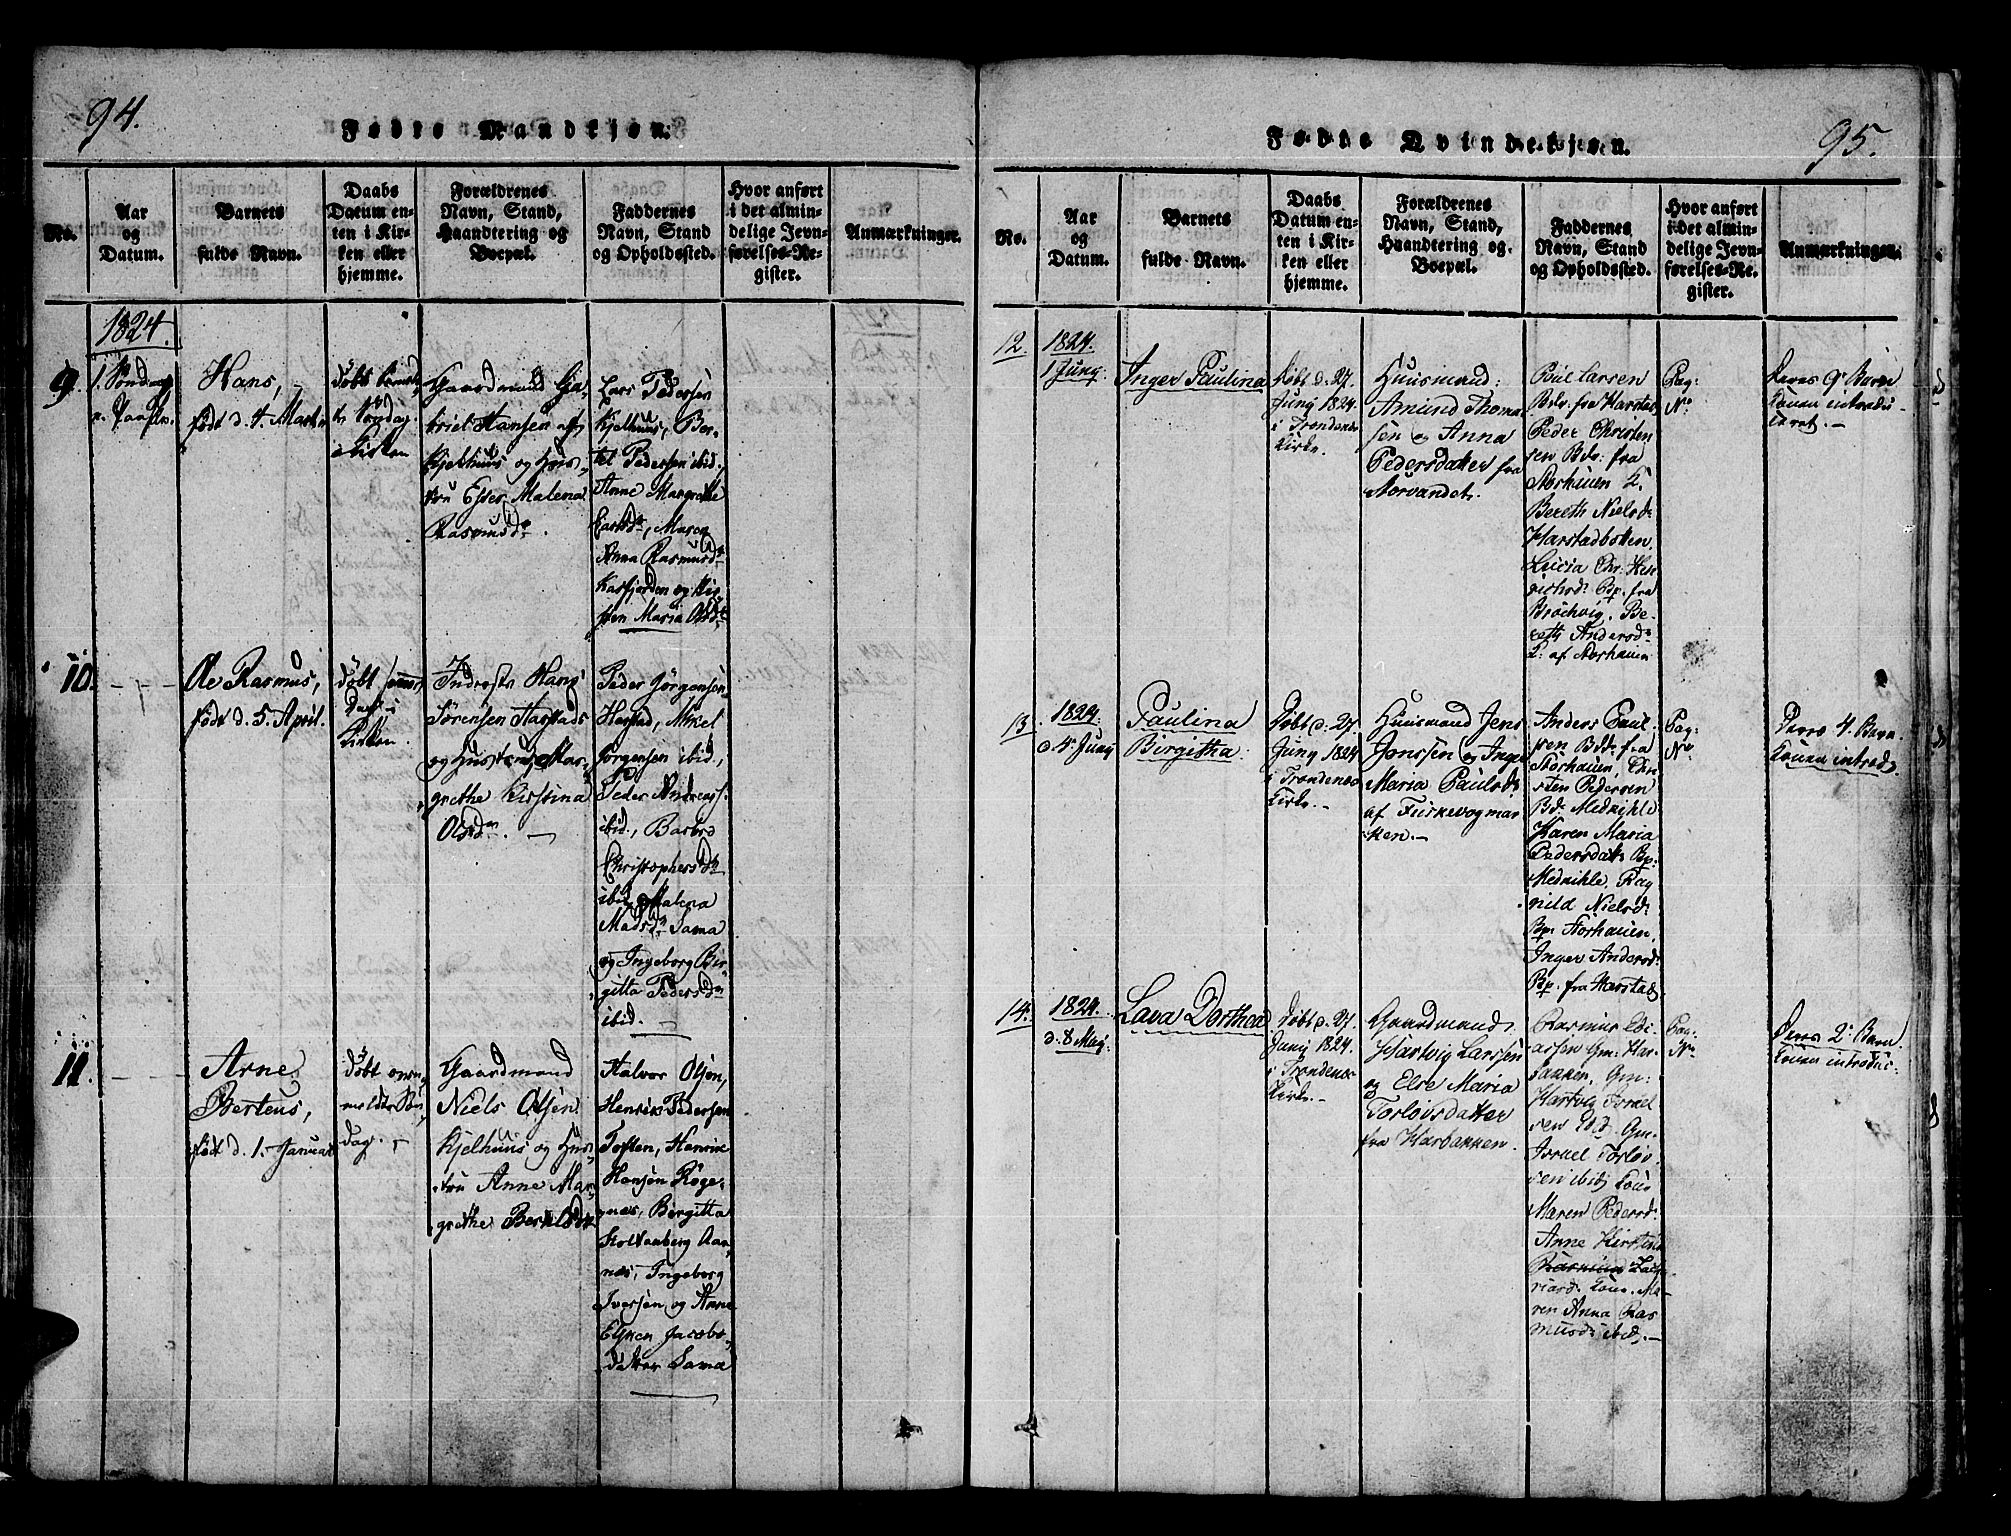 94.
Fødte Mandkjøn.
No.
Aar
og
Datum.
Barnets
fulde Navn.
Daabs
Datum en-
ten i Kir-
ken eller
hjemme.
Forældrenes
Navn, Stand,
Haandtering og
Boepæl.
Faddernes
Navn, Stand
og Opholdssted.
Hvor anført
i det almin-
delige Jevn-
førelses-Re-
gister.
Anmærkninger.
1824.
9.
1. Søndag
p. Paaske.
Hans,
født d. 4. Marts
døbt
Søndag
i Kirken
Gaardmand Ga-
briel Hansen af
Kjelhuus og Hus-
tru Ester Malena
Rasmusd.
Lars Pedersen
Kjelhuus, Ber-
tel Pedersen ibid.
Anne Margrethe
Larsd., Maren
Anna Rasmusd.
Kasfjorden og
Maria Olsd.
10.
Ole Rasmus,
født d. 5. April.
døbt samme
Dag i
Kirken.
Inderst Hans
Sørensen Harstad
og Hustru Mar-
grethe Kirstina
Olsd.
Peder Jørgensen
Harstad, Mikel
Jørgensen ibid.,
Peder Andreas
ibid., Barbro
Christophersd.
ibid, Malena
Madsd. Sama
og Ingeborg Bir-
gitta Pedersd.
ibid.
11.
Arne
Berteus,
født d. 1. Januar
døbt
meldte Søn-
dag.
Gaardmand
Niels Olsen
Kjelhuus og Hus-
tru Anne Mar-
grethe Bertelsd.
Halvor Olsen,
Henrik Pedersen
Toften, Henrik
Hansen Røge-
næs, Birgitta
Holtanberg Aar-
næs, Ingeborg
Iversen og Anne
Elinen Jacobs-
datter Sama
95.
Fødte Qvindekjøn.
No.
Aar
og
Datum.
Barnets
fulde Navn.
Daabs
Datum en-
ten i Kir-
ken eller
hjemme.
Forældrenes
Navn, Stand,
Haandtering og
Boepæl.
Faddernes
Navn, Stand
og Opholdssted.
Hvor anført
i det almin-
delige Jevn-
førelses-Re-
gister.
Anmærkninger.
12.
1824.
1 Juny.
Inger Paulina
Døbt d. 27.
Juny 1824.
i Trondenæs
Kirke.
Huusmand:
Amund Thoma
sen og Anna
Pedersdatter fra
Norvandet.
Larsen
fra Harstad,
Peder Christen
sen fra
Storhauen K.
Bereth Nielsd:
Harstadbotten.
Lucia Chr: Hen
fra
Brochvig. Be-
reth Andersd:
af Storhauen
Pag:
No
Deres 9de Barn
Konen introdu-
ceret.
13.
1824.
d. 4. Juny
Paulina
Birgitha.
Døbt d. 27.
Juny 1824
i Trondenæs
Kirke.
Huusmand Jens
Jonssen og Inger
Maria Paulsd:
af Fuskevogmar
ken.
Anders Paul-
sen fra
Storhauen, Chri
sten Pedersen
Medkihle
Karen Maria
Pedersdatt:
Medkihle, Rag
nild Nielsd:
Storhauen,
Inger Andersd:
fra Harstad.
Pag:
No
Deres 4. Barn.
Konen introd.
14.
1824.
d. 8 May.
Lava Dorthea
Døbt d. 27.
Juny 1824.
i Trondenæs
Kirke.
Gaardmand
Hartvig Larssen
og Else Maria
Torlovsdatter
fra Harbakken.
Rasmus Edi
assen Gm: Har-
bakken, Gm:
Hartvig Israel
sen Gm.
Israel Torlov
sen ibid. Kone
Maren Pedersd:
Anne Kirstina
Kone Ma-
ren Anna Ras
musd: ibid.
Pag:
No
Deres 2. Barn
Konen introduc: